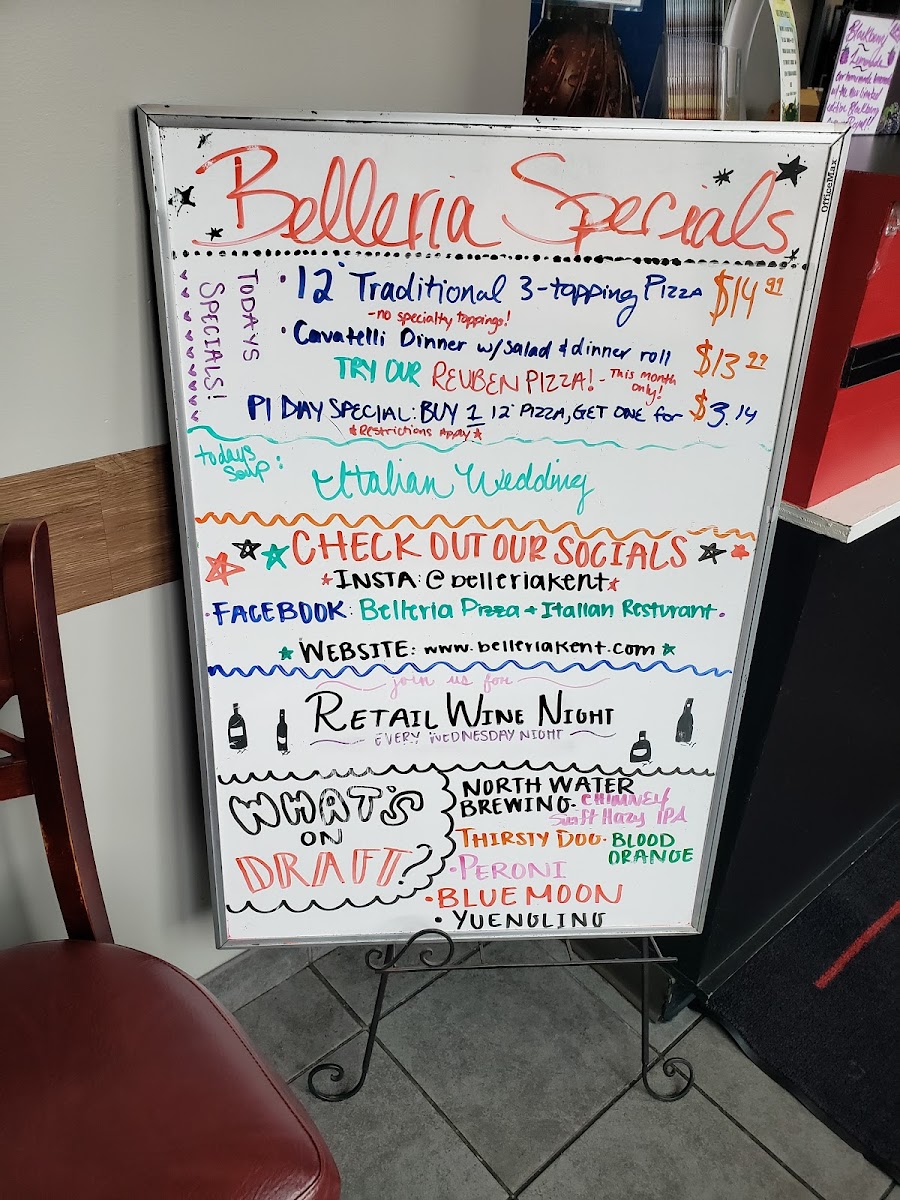 Belleria Specials
OfficeMax
TODAYS
SPECIALS!
• 12" Traditional 3-topping Pizza $14.99
-no specialty toppings!
• Cavatelli Dinner w/salad & dinner roll $13.99
TRY OUR REUBEN PIZZA! - This month only!
PI DAY SPECIAL: BUY 1 12" PIZZA, GET ONE for $3.14
*Restrictions Apply*
todays soup:
Italian Wedding
CHECK OUT OUR SOCIALS
INSTA: @belleriakent
FACEBOOK: Belleria Pizza & Italian Resturant
WEBSITE: www.belleriakent.com
join us for
RETAIL WINE NIGHT
EVERY WEDNESDAY NIGHT
WHAT'S
ON
DRAFT?
NORTH WATER
BREWING- CHIMNEY
Swift Hazy IPA
THIRSTY DOG- BLOOD
ORANGE
• PERONI
• BLUE MOON
• YUENGLING
Blackberry
Lemonade
Our homemade lemonade